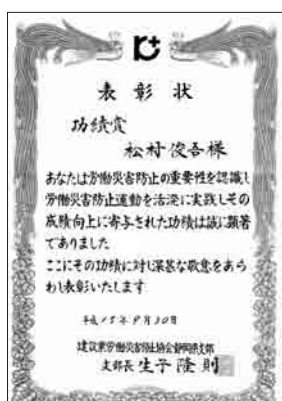 表彰状
功績賞
松村俊吾様
あなたは労働災害防止の重要性を認識し
労働災害防止運動を活溌に実践しその
成績向上に寄与された功績は誠に顕著
でありました
ここにその功績に対し深甚な敬意をあら
わし表彰いたします
平成15年9月30日
建設業労働災害防止協会静岡県支部
支部長 生子隆則